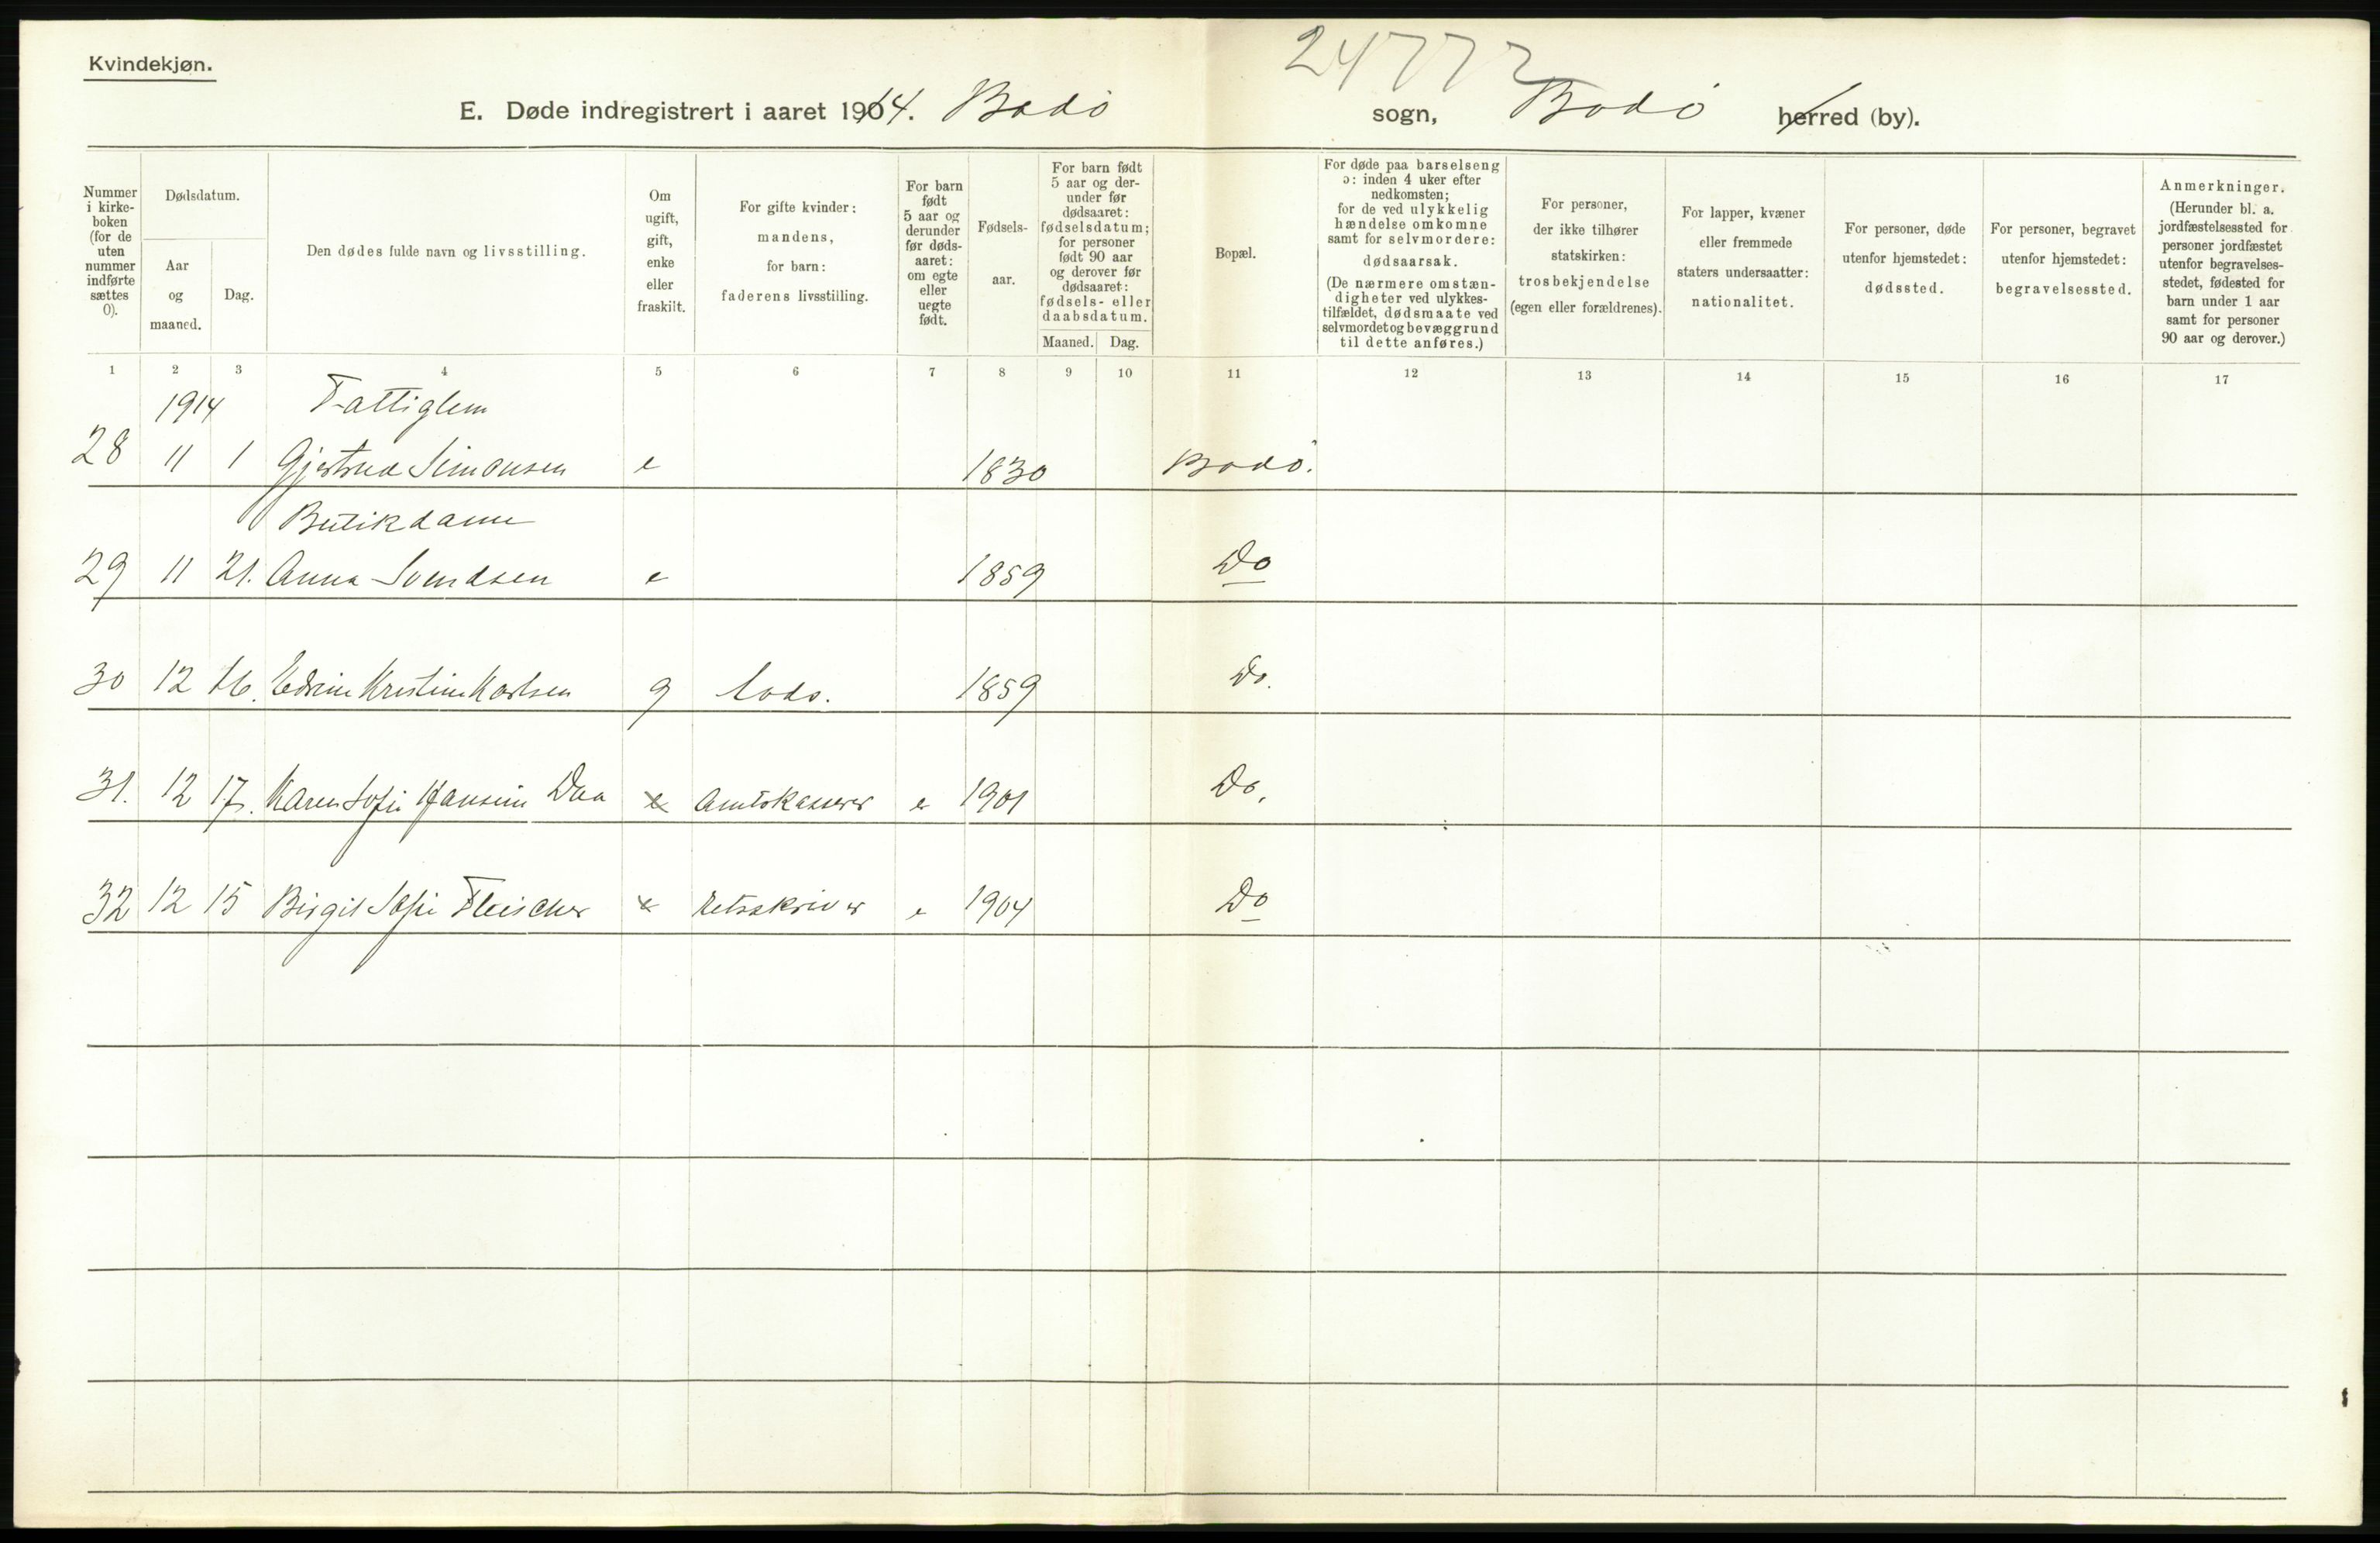 Kvindekjøn.
24772
E. Døde indregistrert i aaret 1914. Bodø sogn, Bodø herred (by).
Nummer i kirkeboken (for de uten nummer indførte sættes 0).
Dødsdatum.
Aar og maaned.
Dag.
Den dødes fulde navn og livsstilling.
Om ugift, gift, enke eller fraskilt.
For gifte kvinder: mandens, for barn: faderens livsstilling.
For barn født 5 aar og derunder før dødsaaret: om egte eller uegte født.
Fødselsaar.
For barn født 5 aar og derunder før dødsaaret: fødselsdatum; for personer født 90 aar og derover før dødsaaret: fødsels- eller daabsdatum.
Maaned. Dag.
Bopæl.
For døde paa barselseng ɔ: inden 4 uker efter nedkomsten; for de ved ulykkelig hændelse omkomne samt for selvmordere: dødsaarsak.
(De nærmere omstændigheter ved ulykkestilfældet, dødsmaate ved selvmordet og bevæggrund til dette anføres.)
For personer, der ikke tilhører statskirken: trosbekjendelse (egen eller forældrenes).
For lapper, kvæner eller fremmede staters undersaatter: nationalitet.
For personer, døde utenfor hjemstedet: dødssted.
For personer, begravet utenfor hjemstedet: begravelsessted.
Anmerkninger. (Herunder bl. a. jordfæstelsessted for personer jordfæstet utenfor begravelsesstedet, fødested for barn under 1 aar samt for personer 90 aar og derover.)
1 2 3 4 5 6 7 8 9 10 11 12 13 14 15 16 17
1914 Fattiglem
28 11 1 Gjertrud Simonsen e 1830 Bodø.
Butikdame
29 11 21. Anna Svendsen e 1859 Do
30 12 16. Kristine Karlsen g Lods. 1859 Do.
31. 12 17. Karen Sofie Hansine Daa e Amtskasserer e 1901 Do.
32 12 15 Birgit Sofie Fleischer e retsskriver e 1904 Do